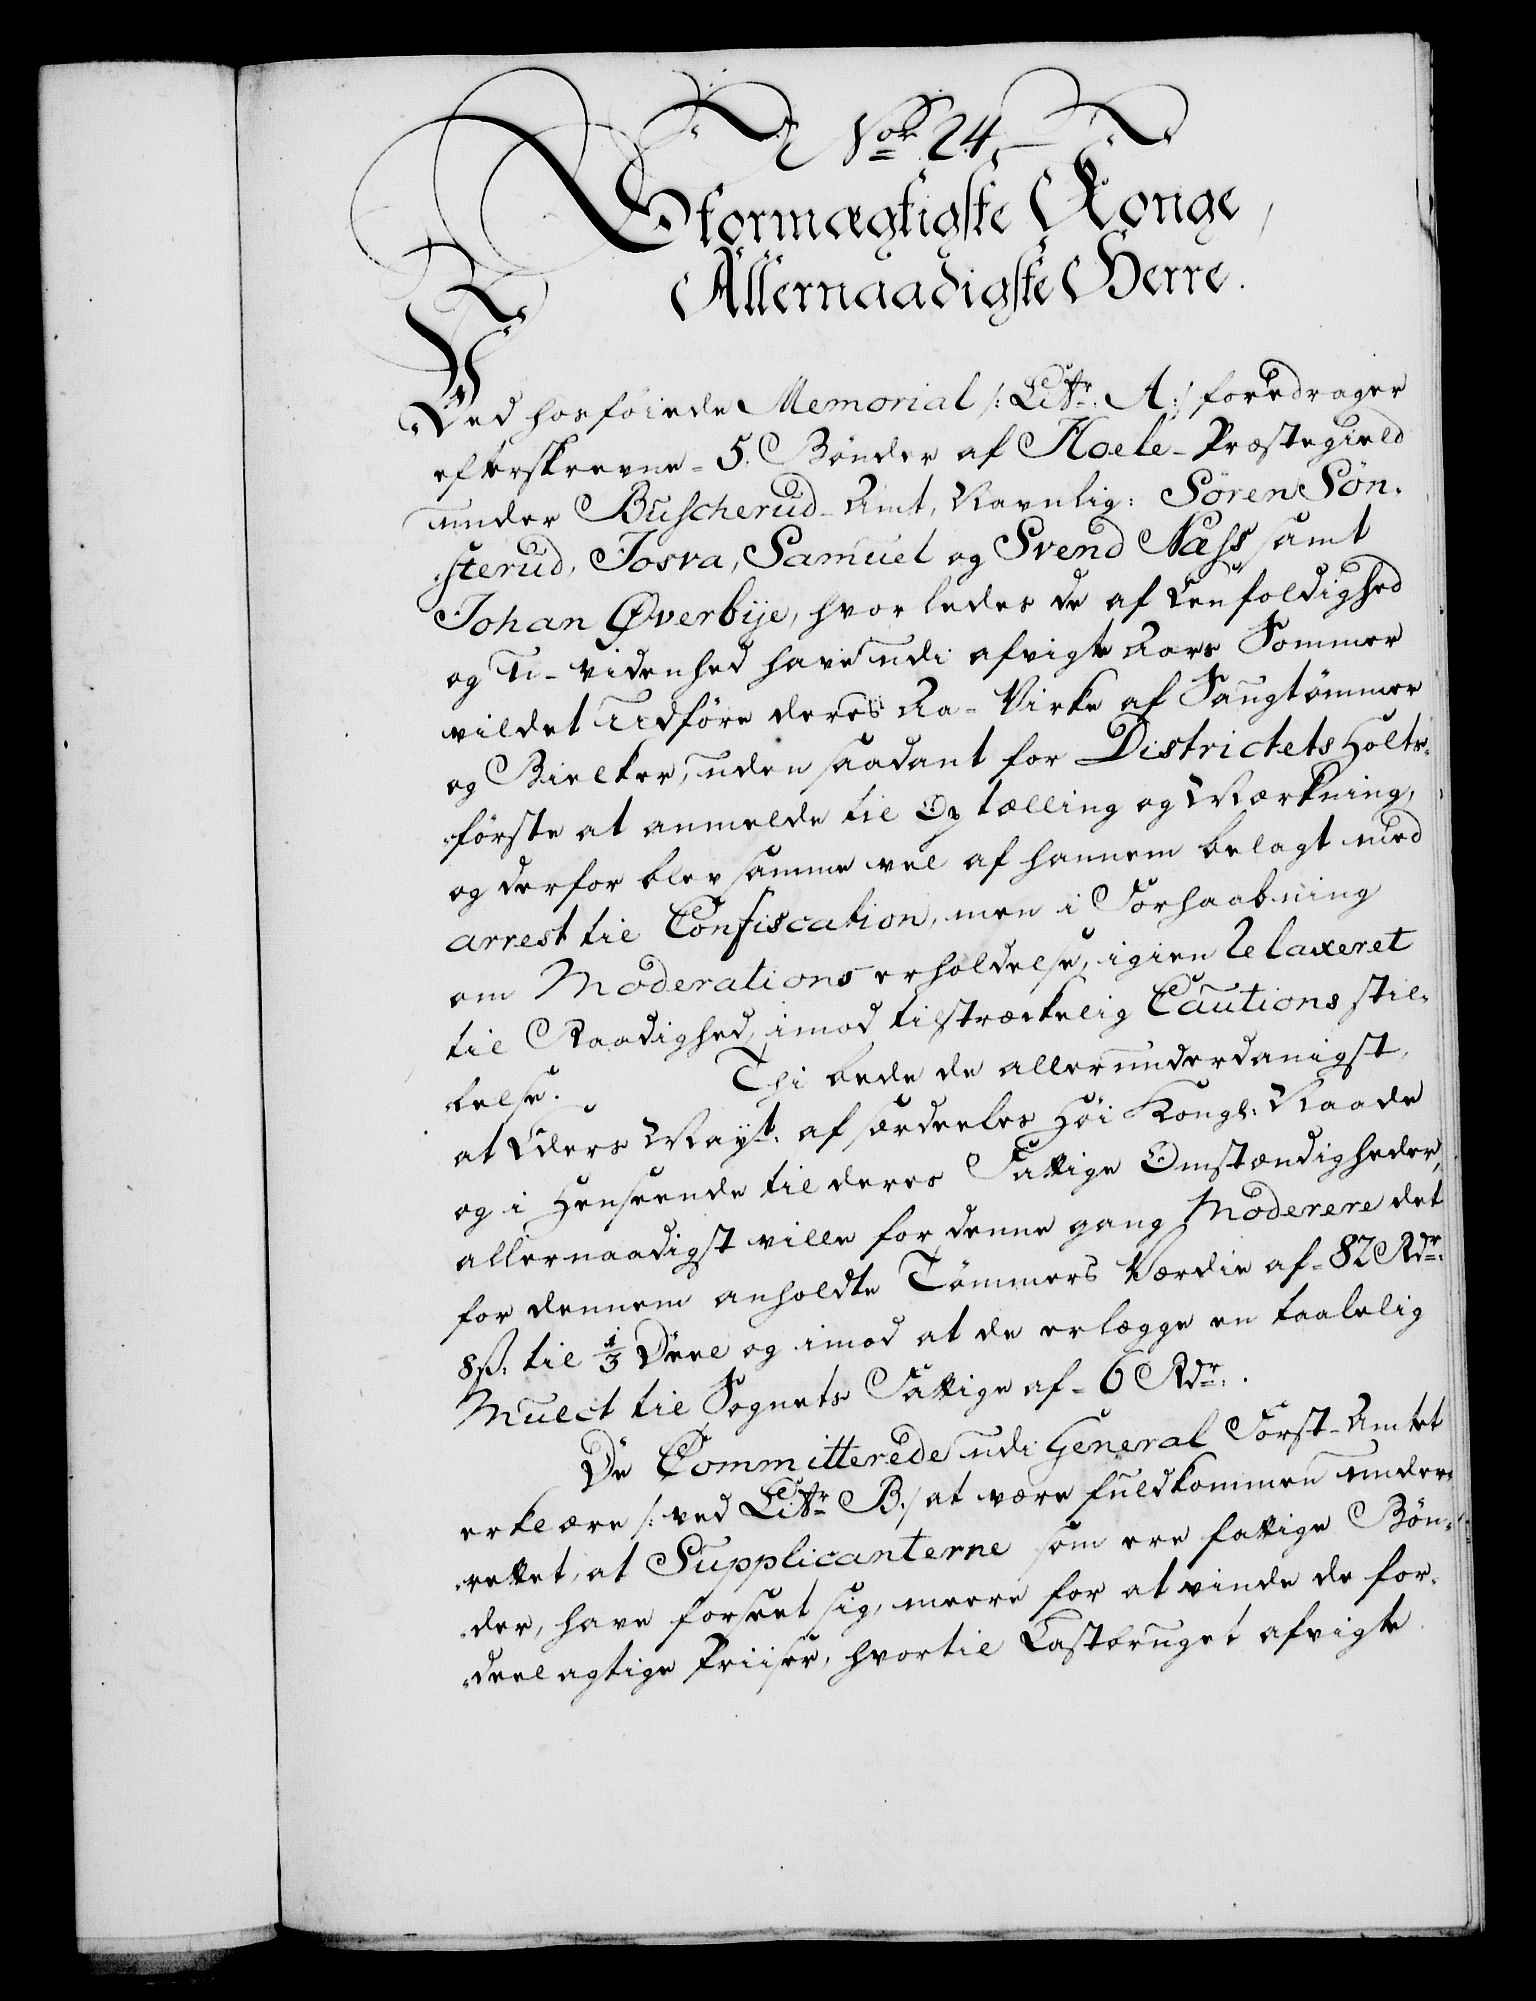 No: 24.
Stormægtigste Konge,
Allernaadigste Herre.
Ved hosføiede Memorial /: Littr: A:/ foredrager
efterskrevne 5. Bønder af Hoele-Præstegield
under Buscherud-Amt, Navnlig: Søren Søn-
sterud, Josva, Samuel og Svend Næss samt
Johan Øverbÿe, hvorledes de af Eenfoldighed
og U-videnhed have udi afvigte Aars Sommer
vildet udføre deres Aa-Virke af Saugtømmer
og Bielker, uden saadant for Districtets Holtz-
förste at anmelde til Optælling og Mærkning,
og derfor blev samme vel af hannem belagt med
arrest til Confiscation, men i Forhaabning
om Moderations erholdelse, igien relaxeret
til Raadighed, imod tilstrækkelig Cautions stil-
lelse. Thi bede de allerunderdanigst,
at Eders Mayt: af særdeeles Høi Kongl: Naade
og i Henseende til deres Fattige Omstændigheder,
allernaadigst ville for denne gang Moderere det
for dennem anholdte Tømmers Værdie af 82 Rdr:
8 ß: til 1/3 Deel og imod at de erlægge en taalelig
Mulct til Sognets Fattige af 6 Rdr:.
De Committerede udi General Forst-Amtet
erklære /: ved Littr B:/ at være fuldkommen under-
rettet, at Supplicanterne som ere fattige Bøn-
der, have forseet sig, meere for at vinde de for-
deelagtige Priiser, hvortil Lastbruget afvigte